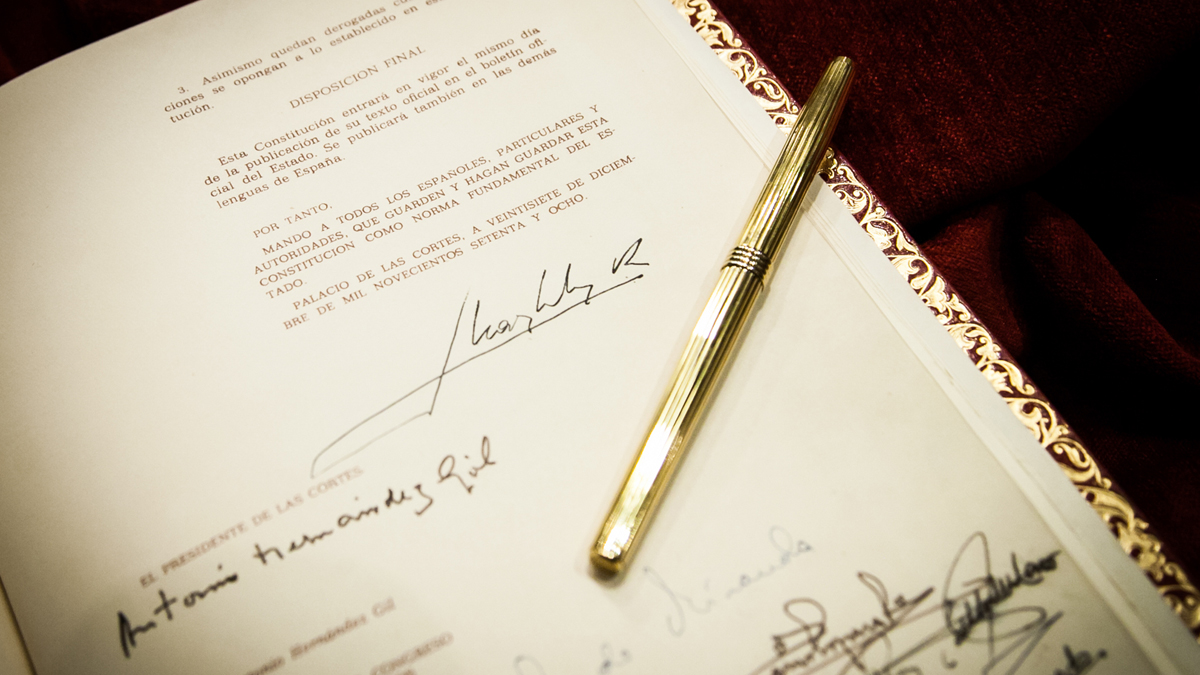 3. Asimismo quedan derogadas
ciones se opongan a lo establecido en
tución.
DISPOSICION FINAL
Esta Constitución entrará en vigor el mismo día
de la publicación de su texto oficial en el boletín ofi-
cial del Estado. Se publicará también en las demás
lenguas de España.
POR TANTO,
MANDO A TODOS LOS ESPAÑOLES, PARTICULARES Y
AUTORIDADES, QUE GUARDEN Y HAGAN GUARDAR ESTA
CONSTITUCION COMO NORMA FUNDAMENTAL DEL ES-
TADO.
PALACIO DE LAS CORTES, A VEINTISIETE DE DICIEM-
BRE DE MIL NOVECIENTOS SETENTA Y OCHO.
EL PRESIDENTE DE LAS CORTES
Antonio Hernández Gil
Hernández Gil
CONGRESO